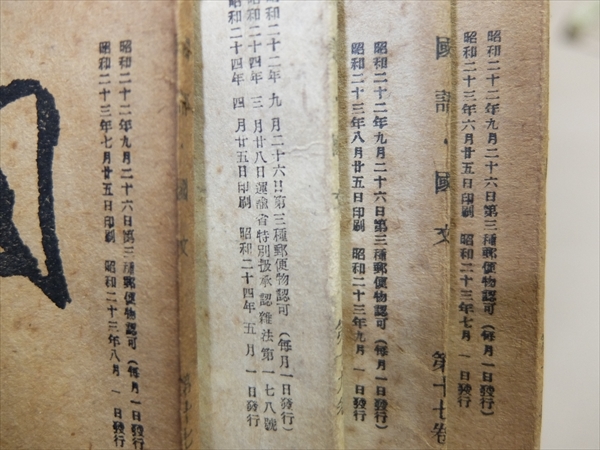 昭和二十二年九月二十六日第三種郵便物認可(每月一日發行)
昭和二十三年六月廿五日印刷 昭和二十三年七月 一日發行
國語・國文 第十七卷
昭和二十二年九月二十六日第三種郵便物認可(每月一日發行)
昭和二十三年八月廿五日印刷 昭和二十三年九月 一日發行
昭和二十二年 九 月二十六日第三種郵便物認可 (每月一日發行)
昭和二十四年 三 月廿八日運輸省特別扱承認雜法第一七八號
昭和二十四年 四 月廿五日印刷 昭和二十四年五 月 一日發行
國文
昭和二十二年九月二十六日第三種郵便物認可(每月一日發行)
昭和二十三年七月廿五日印刷 昭和二十三年八月 一日發行